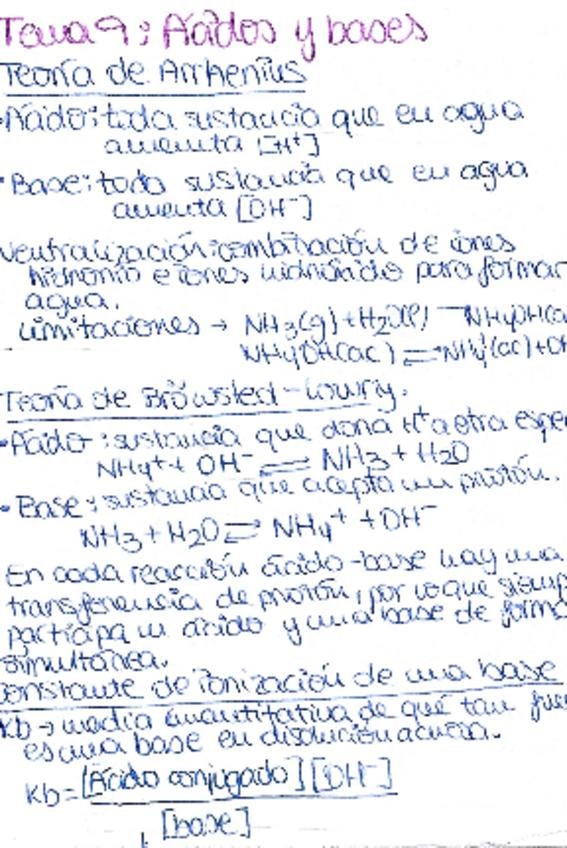 Tema 9: Ácidos y bases
Teoría de Arrhenius
·Ácido: toda sustancia que en agua
aumenta [H⁺]
·Base: toda sustancia que en agua
aumenta [OH⁻]
Neutralización: combinación de iones
hidronio e iones hidróxido para formar
agua.
Limitaciones → NH₃(g) + H₂O(l) → NH₄OH(a
NH₄OH(ac) ⇌ NH₄⁺(ac) + OH
Teoría de Brówsted-Lowry.
·Ácido: sustancia que dona H⁺ a otra espe
NH₄⁺ + OH⁻ ⇌ NH₃ + H₂O
·Base: sustancia que acepta un protón.
NH₃ + H₂O ⇌ NH₄⁺ + OH⁻
En cada reacción ácido-base hay una
transferencia de protón, por lo que siemp
participa un ácido y una base de forma
simultánea.
constante de ionización de una base
Kb → medida cuantitativa de qué tan fue
es una base en disolución acuosa.
Kb = [Ácido conjugado][OH⁻]
[base]